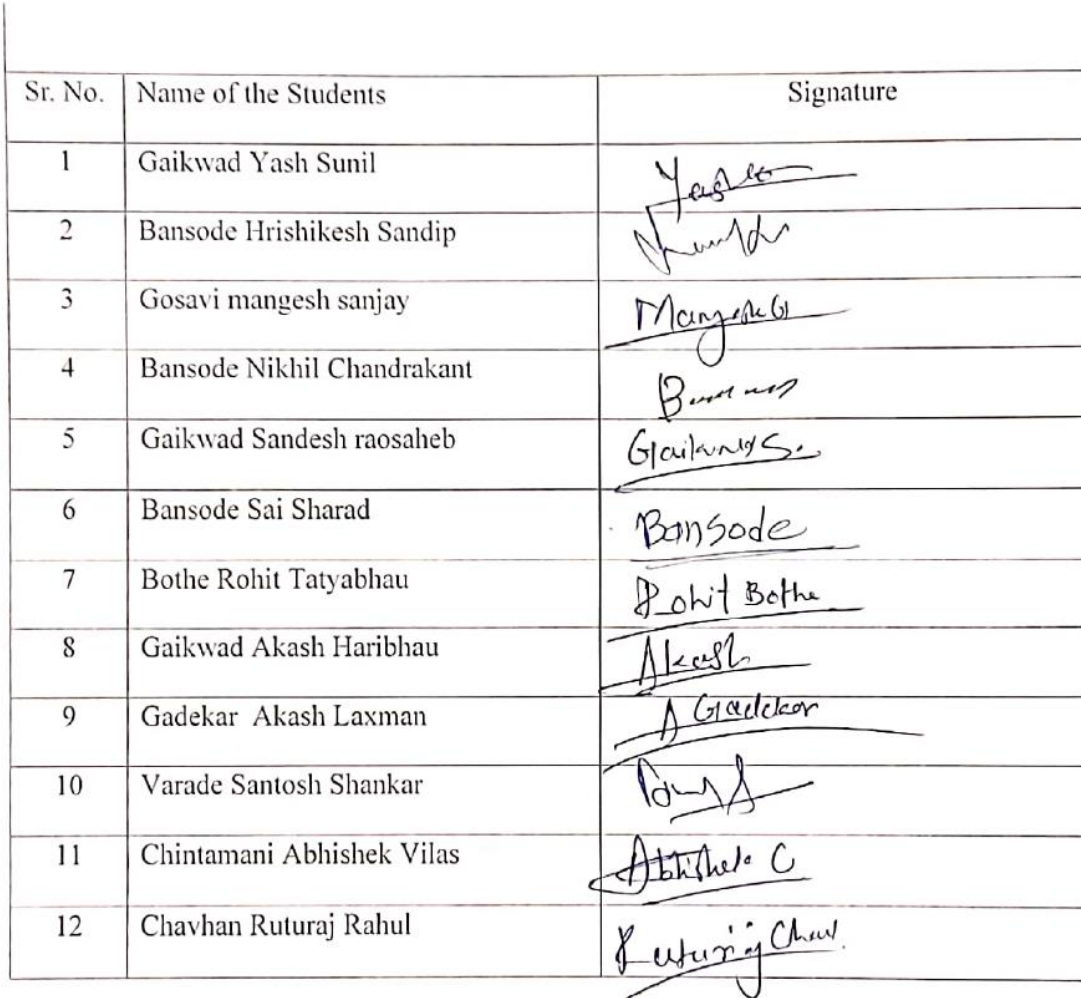 Sr. No. Name of the Students Signature
1 Gaikwad Yash Sunil
2 Bansode Hrishikesh Sandip
3 Gosavi mangesh sanjay Mangesh G
4 Bansode Nikhil Chandrakant
5 Gaikwad Sandesh raosaheb Gaikwad S.
6 Bansode Sai Sharad Bansode
7 Bothe Rohit Tatyabhau Rohit Bothe
8 Gaikwad Akash Haribhau Akash
9 Gadekar Akash Laxman A Gadekar
10 Varade Santosh Shankar
11 Chintamani Abhishek Vilas Abhishek C
12 Chavhan Ruturaj Rahul Ruturaj